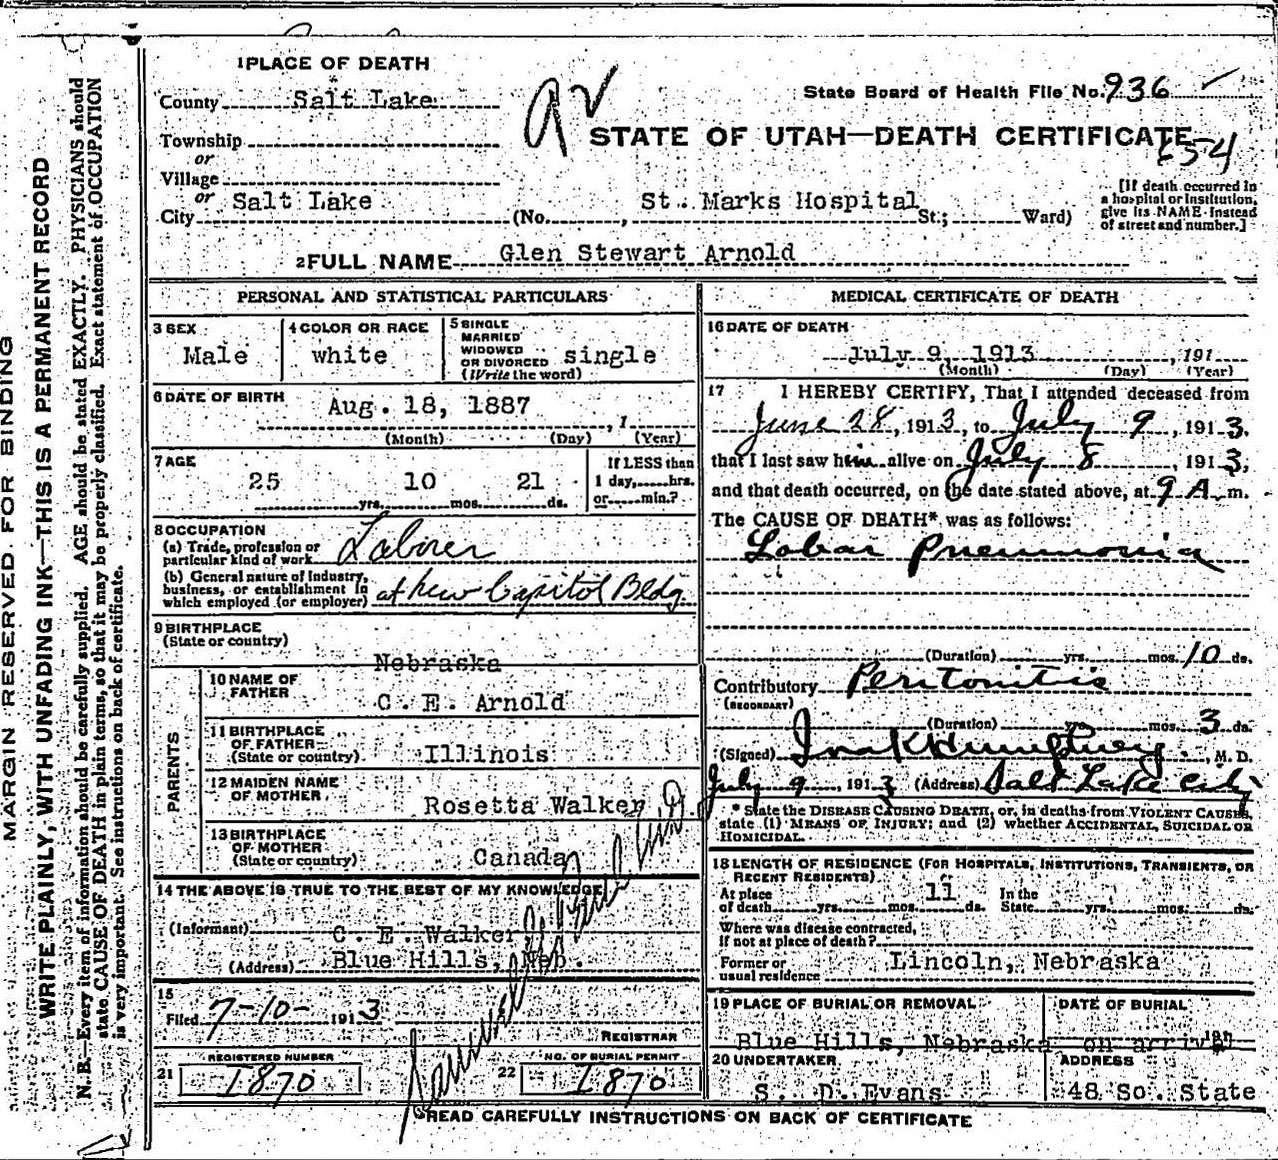 MARGIN RESERVED FOR BINDING
WRITE PLAINLY, WITH UNFADING INK—THIS IS A PERMANENT RECORD
N. B.—Every item of information should be carefully supplied. AGE should be stated EXACTLY. PHYSICIANS should
state CAUSE OF DEATH in plain terms, so that it may be properly classified. Exact statement of OCCUPATION
is very important. See instructions on back of certificate.
1 PLACE OF DEATH
County Salt Lake
State Board of Health File No. 936
STATE OF UTAH—DEATH CERTIFICATE
654
Township
or
Village
or
City Salt Lake (No. , St. Marks Hospital St.; Ward)
[If death occurred in
a hospital or institution,
give its NAME instead
of street and number.]
2 FULL NAME Glen Stewart Arnold
PERSONAL AND STATISTICAL PARTICULARS
3 SEX
Male
4 COLOR OR RACE
white
5 SINGLE
MARRIED
WIDOWED
OR DIVORCED
(Write the word)
single
6 DATE OF BIRTH
Aug. 18, 1887 , 1
(Month) (Day) (Year)
7 AGE
25 yrs. 10 mos. 21 ds.
If LESS than
1 day, hrs.
or min.?
8 OCCUPATION
(a) Trade, profession or
particular kind of work Laborer
(b) General nature of industry,
business, or establishment in
which employed (or employer) at New Capitol Bldg.
9 BIRTHPLACE
(State or country)
Nebraska
PARENTS
10 NAME OF
FATHER
C. E. Arnold
11 BIRTHPLACE
OF FATHER
(State or country) Illinois
12 MAIDEN NAME
OF MOTHER
Rosetta Walker
13 BIRTHPLACE
OF MOTHER
(State or country) Canada
14 THE ABOVE IS TRUE TO THE BEST OF MY KNOWLEDGE
(Informant) C. E. Walker
(Address) Blue Hills, Neb.
15
Filed 7-10- 1913
REGISTRAR
REGISTERED NUMBER
21 1870
NO. OF BURIAL PERMIT
22 1870
MEDICAL CERTIFICATE OF DEATH
16 DATE OF DEATH
July 9, 1913 , 191
(Month) (Day) (Year)
17 I HEREBY CERTIFY, That I attended deceased from
June 28, 1913, to July 9, 1913,
that I last saw him alive on July 8, 1913,
and that death occurred, on the date stated above, at 9 A. m.
The CAUSE OF DEATH* was as follows:
Lobar Pneumonia
(Duration) yrs. mos. 10 ds.
Contributory Peritonitis
(SECONDARY)
(Duration) yrs. mos. 3 ds.
(Signed) Humphrey, M. D.
July 9, 1913 (Address) Salt Lake City
* State the DISEASE CAUSING DEATH, or, in deaths from VIOLENT CAUSES,
state (1) MEANS OF INJURY; and (2) whether ACCIDENTAL, SUICIDAL OR
HOMICIDAL.
18 LENGTH OF RESIDENCE (FOR HOSPITALS, INSTITUTIONS, TRANSIENTS, OR
RECENT RESIDENTS)
At place
of death yrs. mos. 11 ds.
In the
State yrs. mos. ds.
Where was disease contracted,
if not at place of death?
Former or
usual residence Lincoln, Nebraska
19 PLACE OF BURIAL OR REMOVAL
Blue Hills, Nebraska
DATE OF BURIAL
on arrival 191
20 UNDERTAKER
S. D. Evans
ADDRESS
48 So. State
READ CAREFULLY INSTRUCTIONS ON BACK OF CERTIFICATE